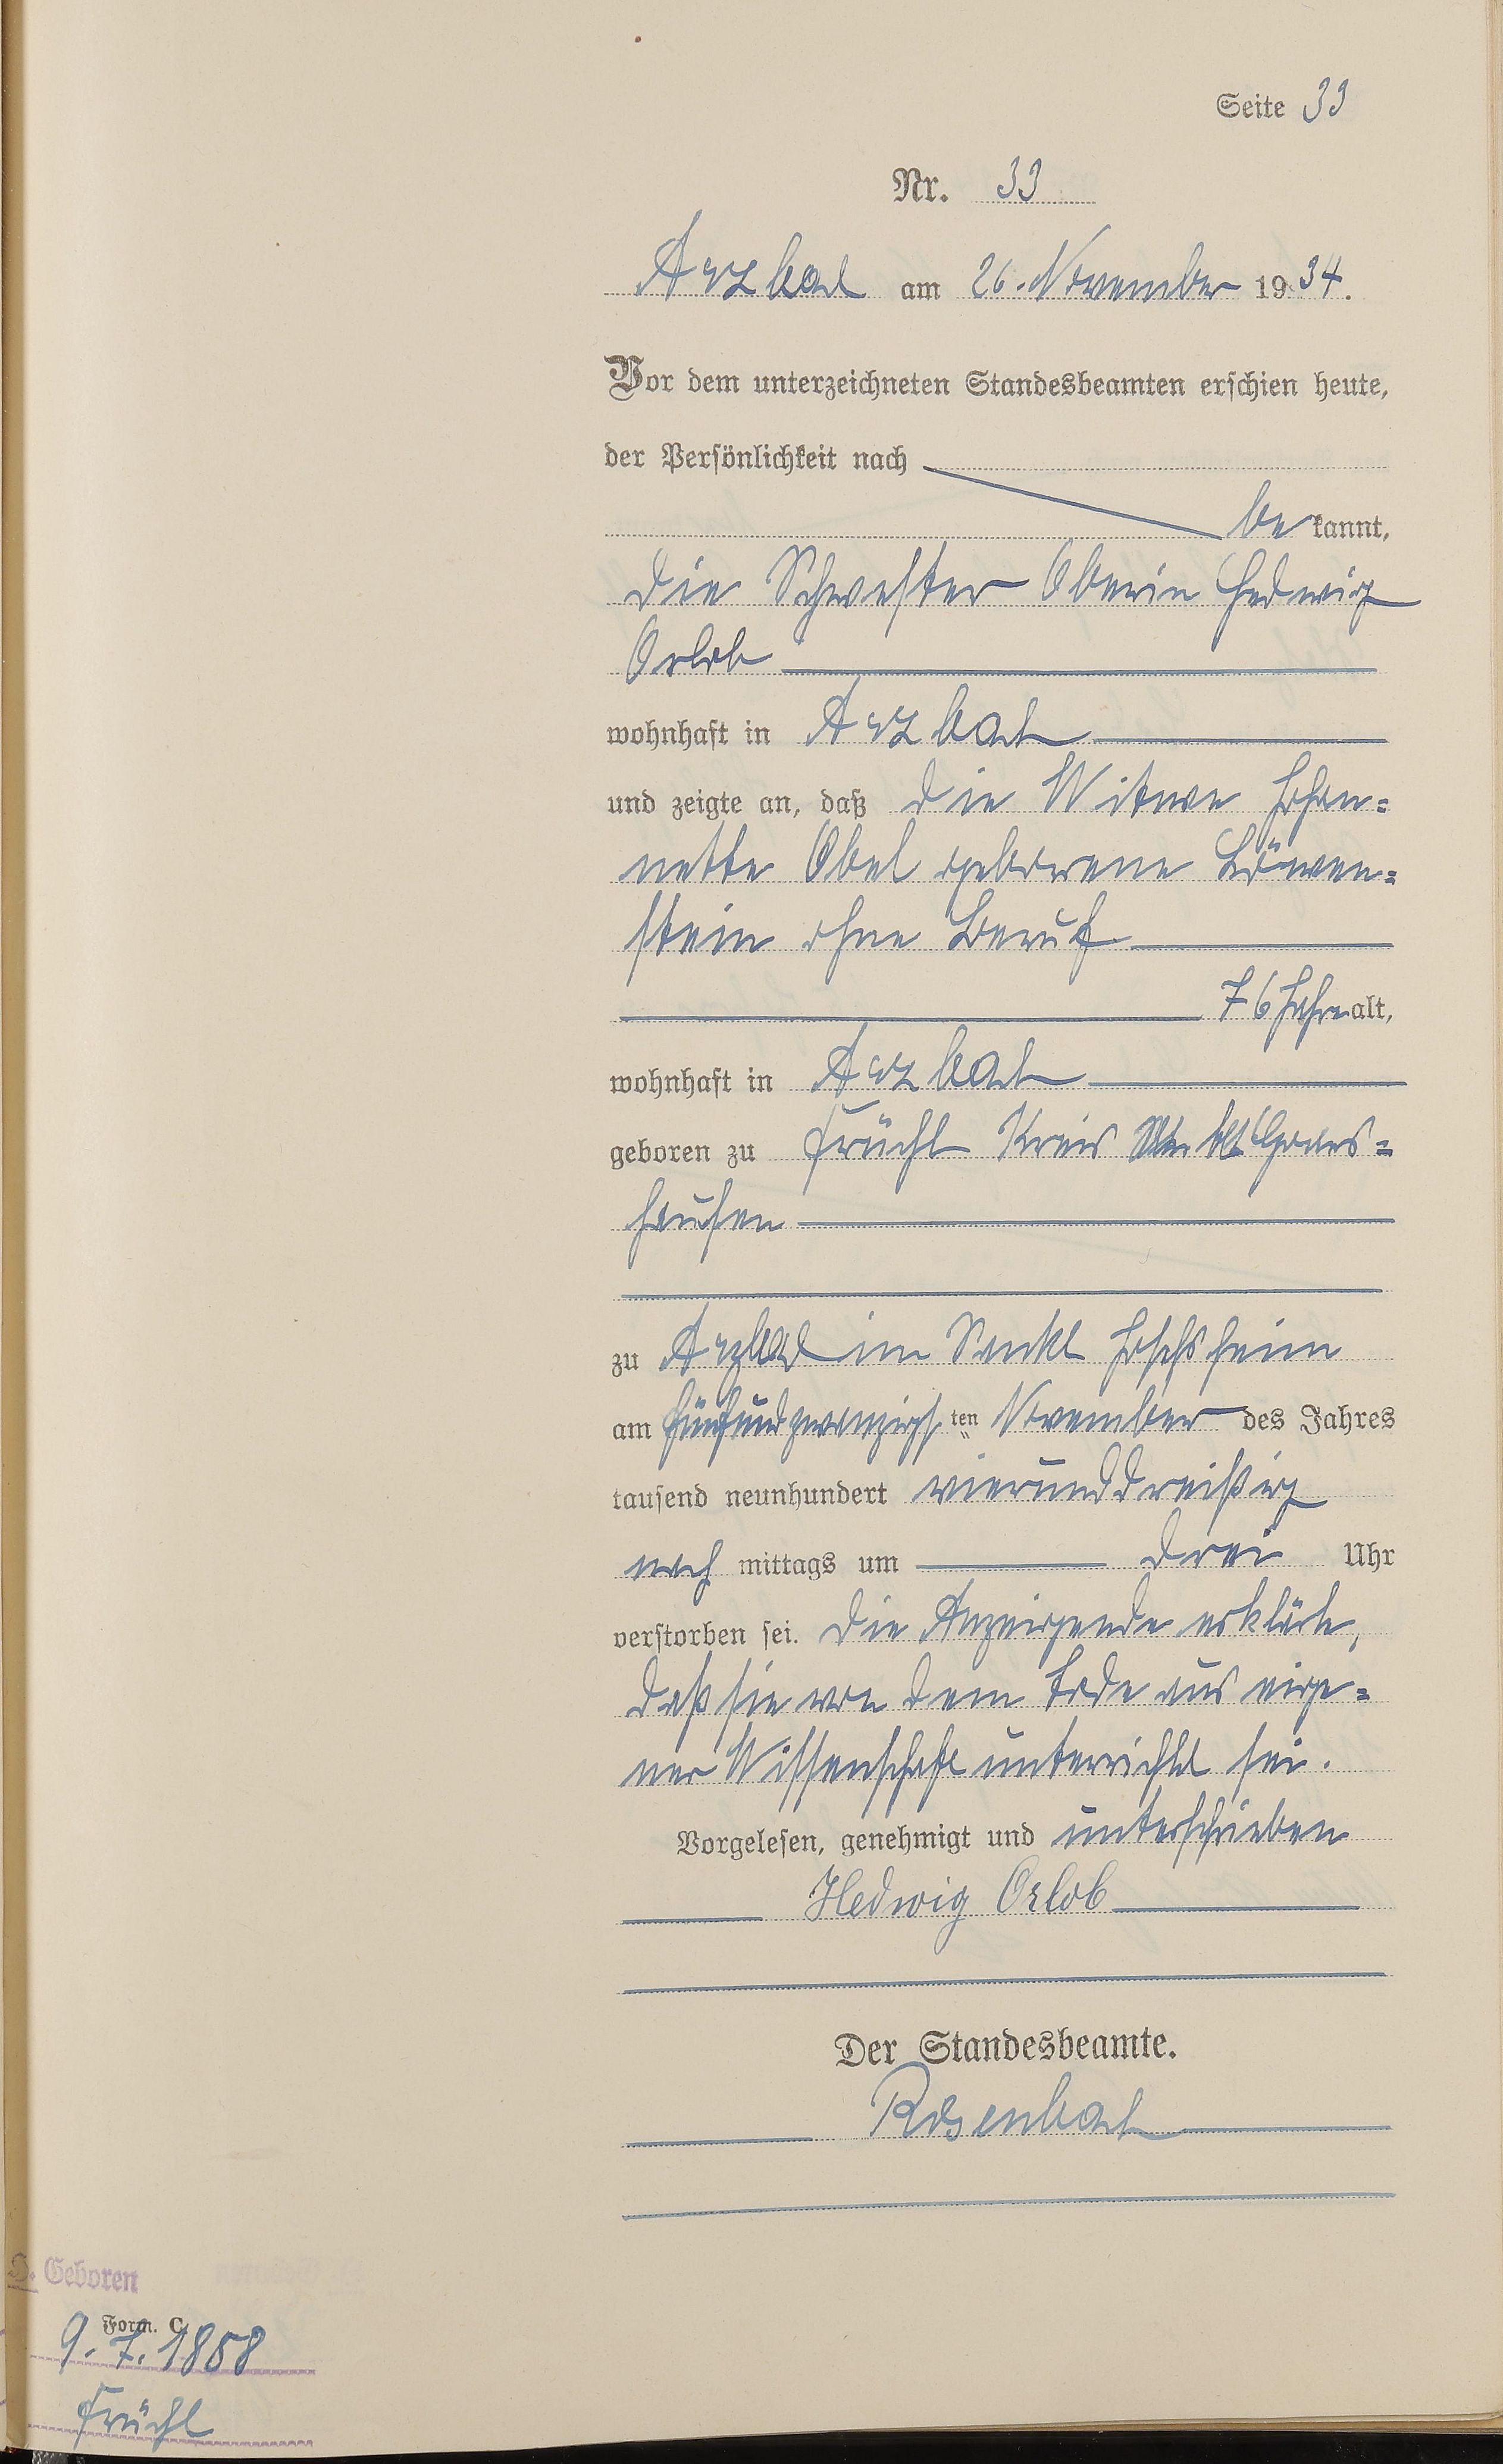 Seite 33
Nr. 33
Arzbach am 26. November 1934.
Vor dem unterzeichneten Standesbeamten erschien heute,
der Persönlichkeit nach
be kannt,
die Schwester Oberin Hedwig
Orlob
wohnhaft in Arzbach
und zeigte an, daß die Witwe Johan=
nette Obel geborene Löwen=
stein ohne Beruf
76 Jahre alt,
wohnhaft in Arzbach
geboren zu Frücht Kreis St. Goars=
hausen
zu Arzbach im Sankt Josefsheim
am fünfundzwanzigsten November des Jahres
tausend neunhundert vierunddreißig
nach mittags um drei Uhr
verstorben sei. Die Anzeigende erklärte,
daß sie von dem Tode aus eige=
ner Wissenschaft unterrichtet sei.
Vorgelesen, genehmigt und unterschrieben
Hedwig Orlob
Der Standesbeamte.
Rosenbach
Geboren
Form. C.
9. 7. 1858
Frücht